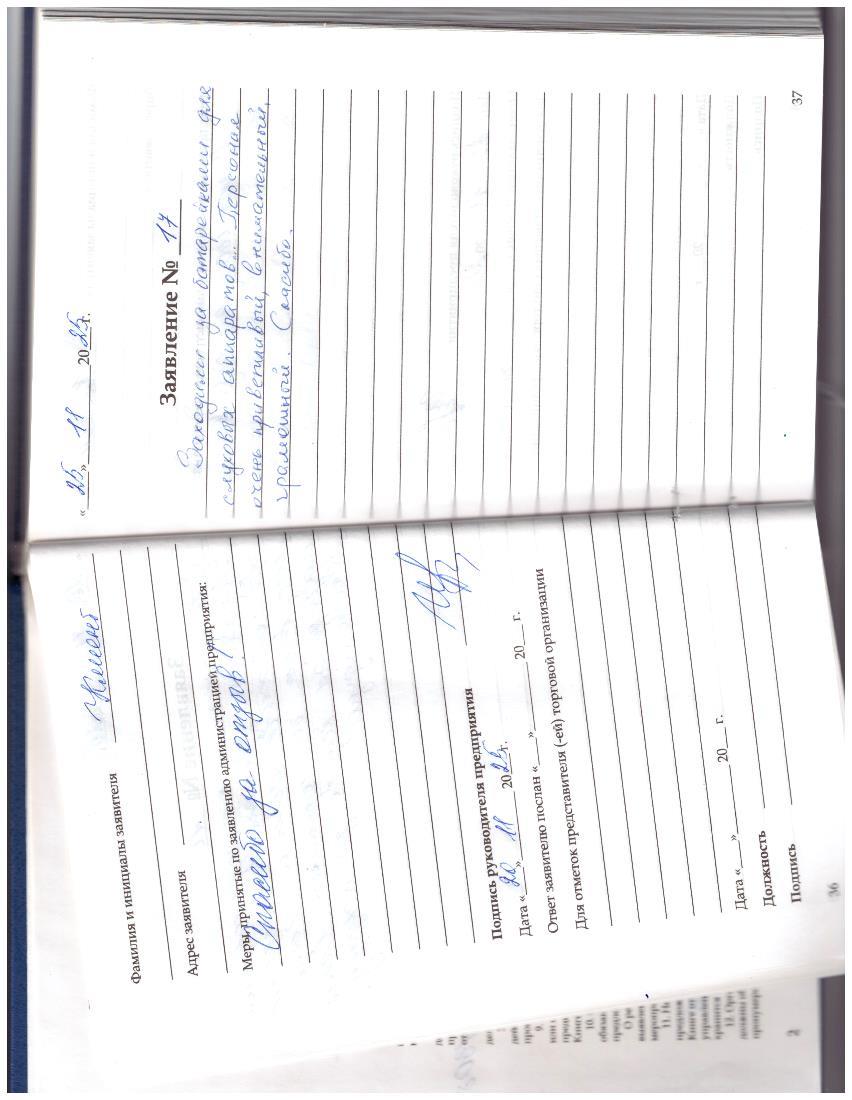 Фамилия и инициалы заявителя Клиент
Адрес заявителя
Меры, принятые по заявлению администрацией предприятия:
Спасибо за отзыв!
Подпись руководителя предприятия
Дата « 26 » 11 2025г.
Ответ заявителю послан «___»________20___ г.
Для отметок представителя (-ей) торговой организации
Дата «___»________20___ г.
Должность
Подпись
36
« 25 » 11 2025г.
Заявление № 17
Заходили за батарейками для
слуховых аппаратов. Персонал
очень приветливый, внимательный,
грамотный. Спасибо.
37
2